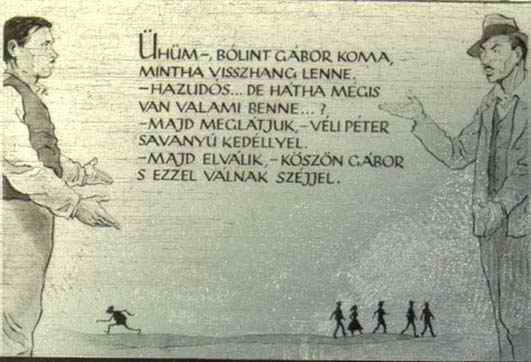 ÜHÜM-, BÓLINT GÁBOR KOMA,
MINTHA VISSZHANG LENNE.
-HAZUDÓS... DE HÁTHA MÉGIS
VAN VALAMI BENNE...?
-MAJD MEGLÁTJUK,-VÉLI PÉTER
SAVANYÚ KEDÉLLYEL.
-MAJD ELVÁLIK,-KÖSZÖN GÁBOR
S EZZEL VÁLNAK SZÉJJEL.